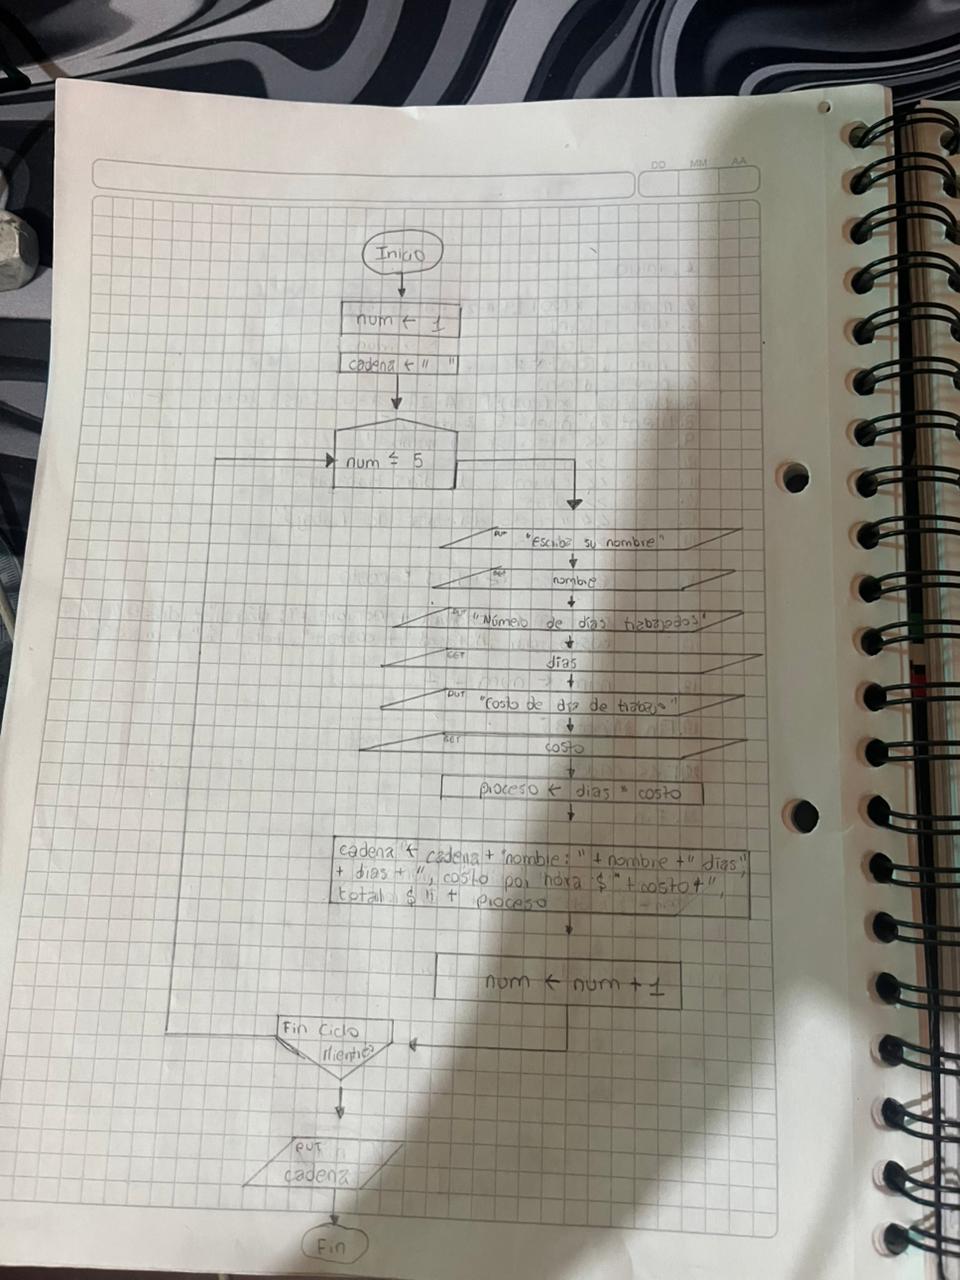 DD MM AA
Inicio
num ← 1
cadena ← "   "
num ≤ 5
PUT "escriba su nombre"
GET nombre
PUT "Número de dias trabajados"
GET dias
PUT "costo de dia de trabajo"
GET costo
proceso ← dias * costo
cadena ← cadena + "nombre: " + nombre + " dias"
+ dias + ", costo por hora $" + costo + ",
total $ " + proceso
num ← num + 1
Fin Ciclo
Mientras
PUT
cadena
Fin